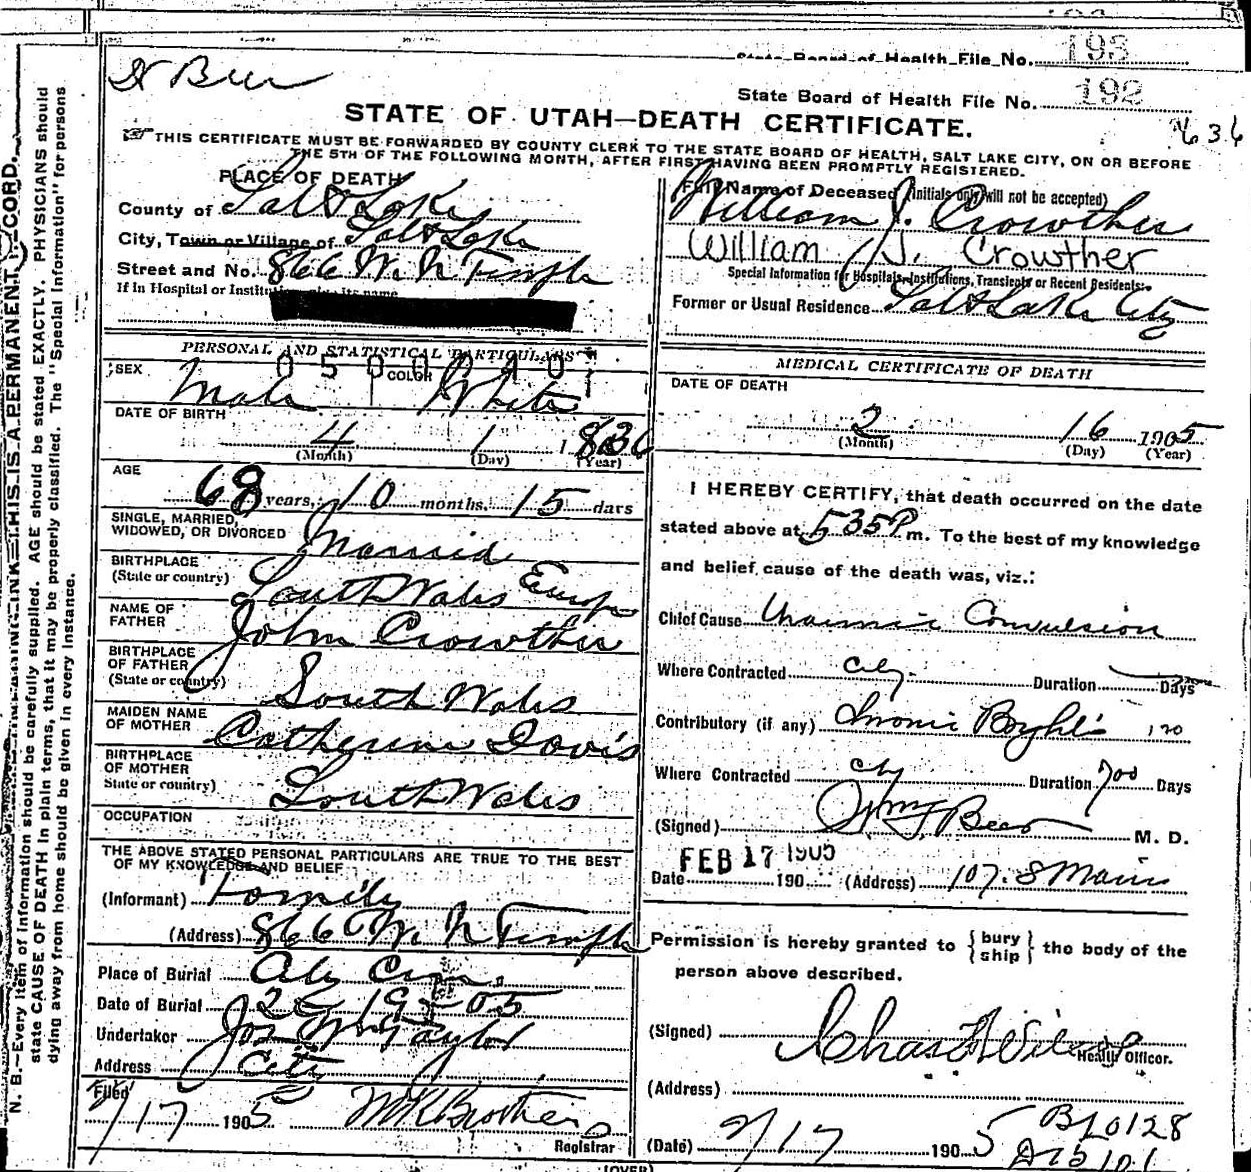 193
State Board of Health File No.
Dr Beer
State Board of Health File No. 192
STATE OF UTAH—DEATH CERTIFICATE.
636
☞ THIS CERTIFICATE MUST BE FORWARDED BY COUNTY CLERK TO THE STATE BOARD OF HEALTH, SALT LAKE CITY, ON OR BEFORE
THE 5TH OF THE FOLLOWING MONTH, AFTER FIRST HAVING BEEN PROMPTLY REGISTERED.
N. B.—Every item of information should be carefully supplied. AGE should be stated EXACTLY. PHYSICIANS should
state CAUSE OF DEATH in plain terms, that it may be properly classified. The "Special Information" for persons
dying away from home should be given in every instance.
THIS IS A PERMANENT
PLACE OF DEATH
County of Salt Lake
City, Town or Village of Salt Lake
Street and No. 866 W. N Temple
If in Hospital or
PERSONAL AND STATISTICAL PARTICULARS
SEX Male COLOR White
DATE OF BIRTH
4 1 1836
(Month) (Day) (Year)
AGE
68 years, 10 months, 15 days
SINGLE, MARRIED,
WIDOWED, OR DIVORCED Married
BIRTHPLACE
(State or country) South Wales Europe
NAME OF
FATHER John Crowther
BIRTHPLACE
OF FATHER
(State or country) South Wales
MAIDEN NAME
OF MOTHER Catherine Davis
BIRTHPLACE
OF MOTHER
State or country) South Wales
OCCUPATION
THE ABOVE STATED PERSONAL PARTICULARS ARE TRUE TO THE BEST
OF MY KNOWLEDGE AND BELIEF
(Informant) Family
(Address) 866 W. N Temple
Place of Burial City Cem.
Date of Burial 2 19 05
Undertaker Jos Wm Taylor
Address City
Filed
2/17 1905
Registrar
(OVER)
Full Name of Deceased (Initials only will not be accepted)
William J. Crowther
William J. Crowther
Special Information for Hospitals, Institutions, Transients or Recent Residents:
Former or Usual Residence Salt Lake City
MEDICAL CERTIFICATE OF DEATH
DATE OF DEATH
2 16 1905
(Month) (Day) (Year)
I HEREBY CERTIFY, that death occurred on the date
stated above at 535P m. To the best of my knowledge
and belief, cause of the death was, viz.:
Chief Cause Uraemic Convulsion
Where Contracted City Duration Days
Contributory (if any) Chronic Bright's 120
Where Contracted City Duration 700 Days
(Signed) Wm F Beer M. D.
FEB 17 1905
Date 190 (Address) 107. S Main
Permission is hereby granted to {bury ship} the body of the
person above described.
(Signed) Chas
Health Officer.
(Address)
(Date) 2/17 1905
B20128